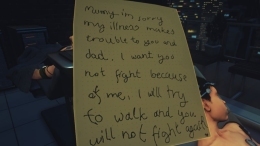 Mummy, im sorry
my illness makes
trouble to you and
dad. I want you
not fight because
of me, I will try
to walk and you
will not fight again!